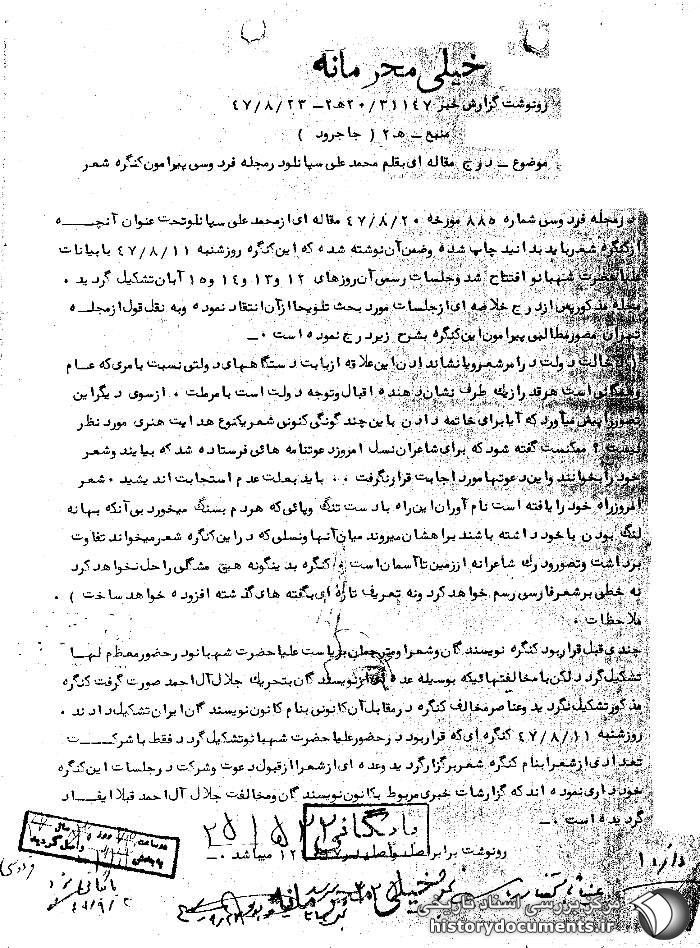 خیلی محرمانه
رونوشت گزارش خبر ۲۰/۳۱۱۴۷هـ۲ – ۴۷/۸/۲۳
منبع – هـ۲ ( جاجرود )
موضوع – درج مقاله ای بقلم محمد علی سپانلو در مجله فردوسی پیرامون کنگره شعر
در مجله فردوسی شماره ۸۸۵ مورخه ۴۷/۸/۲۰ مقاله ای از محمد علی سپانلو تحت عنوان آنچه
از کنگره شعر باید بدانید چاپ شده وضمن آن نوشته شده که این کنگره روز شنبه ۴۷/۸/۱۱ با بیانات
علیاحضرت شهبانو افتتاح شد وجلسات رسمی آن روزهای ۱۲ و ۱۳ و ۱۴ و ۱۵ آبان تشکیل گردید .
مجله مذکور پس از درج خلاصه ای از جلسات مورد بحث تلویحا از آن انتقاد نموده وبه نقل قول از مجله
تهران مصور مطالبی پیرامون این کنگره بشرح زیر درج نموده است ۰–
دخالت دولت در امر شعر ویا نشان دادن این علاقه از بابت دستگاههای دولتی نسبت بامری که عام
وهمگانی است هر قدر از یک طرف نشان دهنده اقبال وتوجه دولت است بامر ملت ، از سوی دیگر این
تصور را پیش میآورد که آیا برای خاتمه دادن باین چند گونگی کنونی شعر یکنوع هدایت هنری مورد نظر
نیست ؟ ممکنست گفته شود که برای شاعران نسل امروز دعوتنامه هائی فرستاده شد که بیایند وشعر
خود را بخوانند واین دعوتها مورد اجابت قرار نگرفت ۰۰ باید بعلت عدم استجابت اندیشید ۰ شعر
امروز راه خود را یافته است نام آوران این راه با دست تنگ وپائی که هر دم بسنگ میخورد بی آنکه بهانه
لنگ بودن با خود داشته باشند براهشان میروند میان آنها ونسلی که در این کنگره شعر میخواند تفاوت
برداشت وتصور ودرک شاعرانه از زمین تا آسمان است ۰ کنگره بدینگونه هیچ مشگلی را حل نخواهد کرد
نه خطی بر شعر فارسی رسم خواهد کرد ونه تعریف تازه ای بگفته های گذشته افزوده خواهد ساخت ) .
ملاحظات ۰
چندی قبل قرار بود کنگره نویسندگان وشعرا ومترجمان بریاست علیاحضرت شهبانو در حضور معظم لها
تشکیل گردد لکن با مخالفتهائیکه بوسیله عده ای از نویسندگان بتحریک جلال آل احمد صورت گرفت کنگره
مذکور تشکیل نگردید وعناصر مخالف کنگره در مقابل آن کانونی بنام کانون نویسندگان ایران تشکیل دادند .
روز شنبه ۴۷/۸/۱۱ کنگره ای که قرار بود در حضور علیاحضرت شهبانو تشکیل گردد فقط با شرکت
تعدادی از شعرا بنام کنگره شعر برگزار گردید وعده ای از شعرا از قبول دعوت وشرکت در جلسات این کنگره
خودداری نموده اند که گزارشات خبری مربوط بکانون نویسندگان ومخالفت جلال آل احمد قبلا ایفاد
گردیده است ۰–
بایگانی
رونوشت برابر اصل واصل در ۱۲ میباشد ۰–
خیلی محرمانه
مرکز بررسی اسناد تاریخی
historydocuments.ir